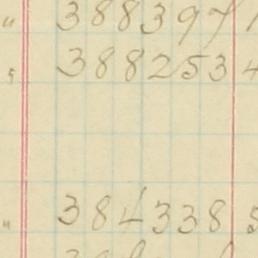 " 388397
5 388253 4
" 384338